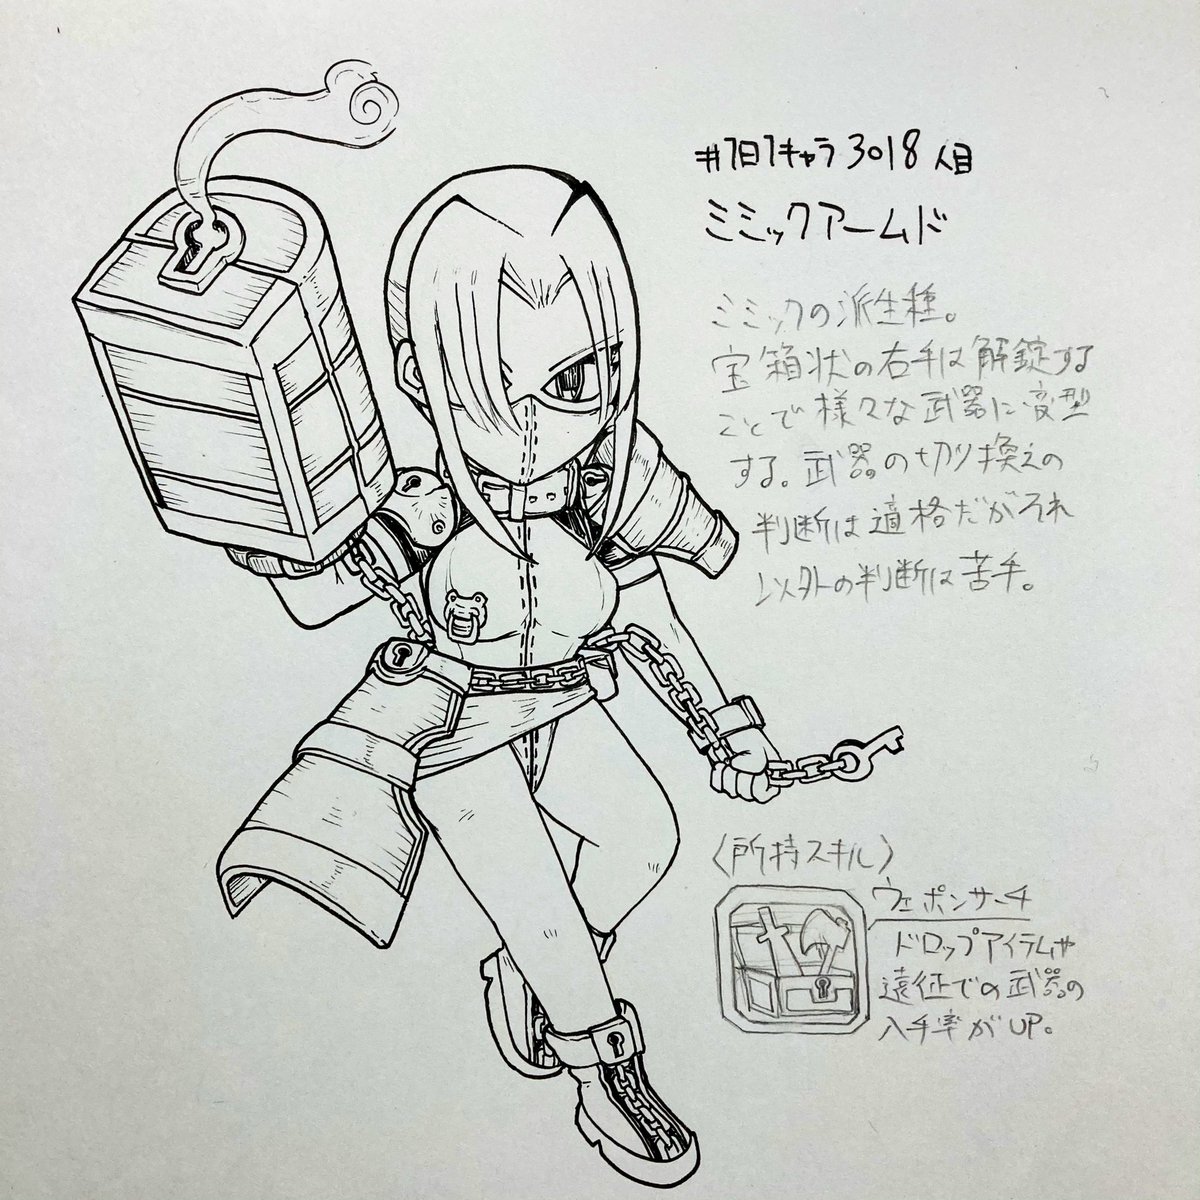 #1日1キャラ 3018人目
ミミックアームド
ミミックの派生種。
宝箱状の右手は解錠する
ことで様々な武器に変型
する。武器の切り換えの
判断は適格だがそれ
以外の判断は苦手。
〈所持スキル〉
ウェポンサーチ
ドロップアイテムや
遠征での武器の
入手率がUP。